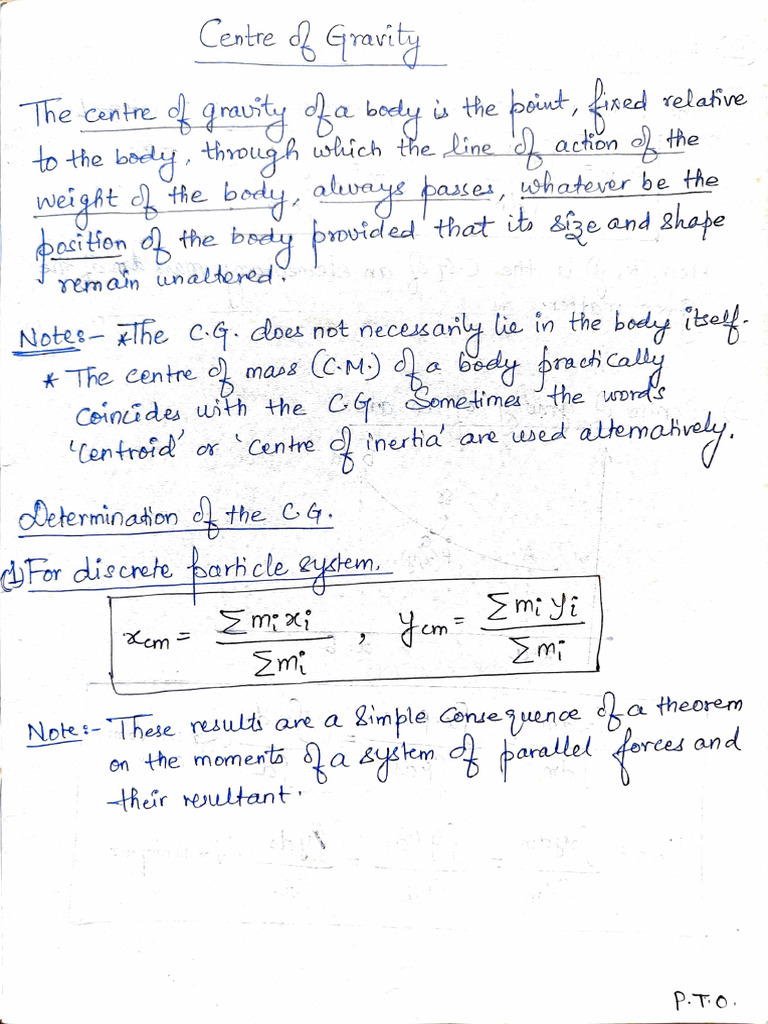 Centre of Gravity
The centre of gravity of a body is the point, fixed relative
to the body, through which the line of action of the
weight of the body, always passes, whatever be the
position of the body provided that its size and shape
remain unaltered.
Notes:- *The C.G. does not necessarily lie in the body itself.
* The centre of mass (C.M.) of a body practically
coincides with the C.G. Sometimes the words
'centroid' or 'centre of inertia' are used alternatively.
Determination of the C.G.
(1) For discrete particle system.
x_cm = Σm_i x_i / Σm_i , y_cm = Σm_i y_i / Σm_i
Note:- These results are a simple consequence of a theorem
on the moments of a system of parallel forces and
their resultant.
P.T.O.